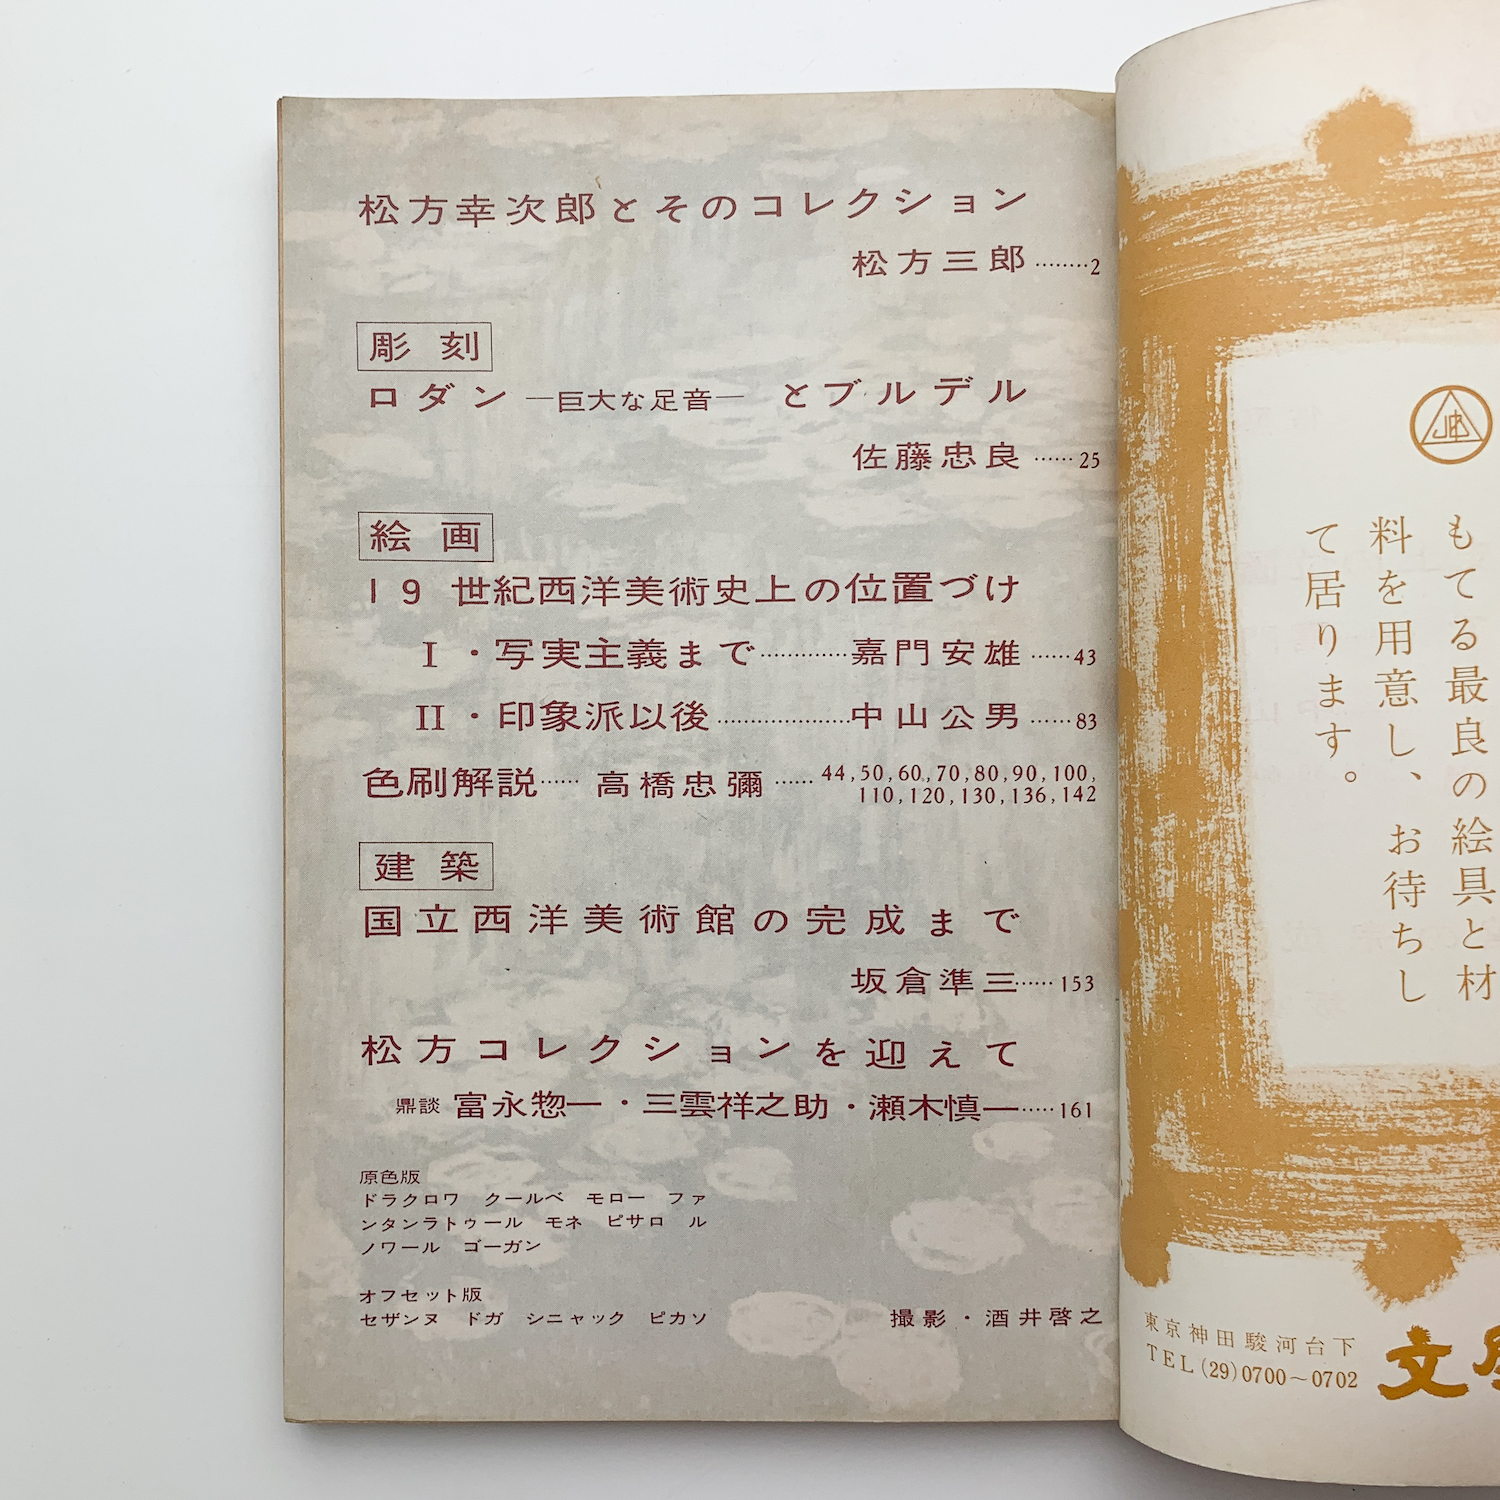 松方幸次郎とそのコレクション
松方三郎………2
彫刻
ロダン―巨大な足音― とブルデル
佐藤忠良……25
絵画
19 世紀西洋美術史上の位置づけ
I・写実主義まで…………嘉門安雄……43
II・印象派以後………………中山公男……83
色刷解説……高橋忠彌……44,50,60,70,80,90,100,
110,120,130,136,142
建築
国立西洋美術館の完成まで
坂倉準三……153
松方コレクションを迎えて
鼎談 富永惣一・三雲祥之助・瀬木慎一……161
原色版
ドラクロワ クールベ モロー ファ
ンタンラトゥール モネ ピサロ ル
ノワール ゴーガン
オフセット版
セザンヌ ドガ シニャック ピカソ
撮影・酒井啓之
もてる最良の絵具と材
料を用意し、お待ちし
て居ります。
東京神田駿河台下
TEL(29)0700~0702
文